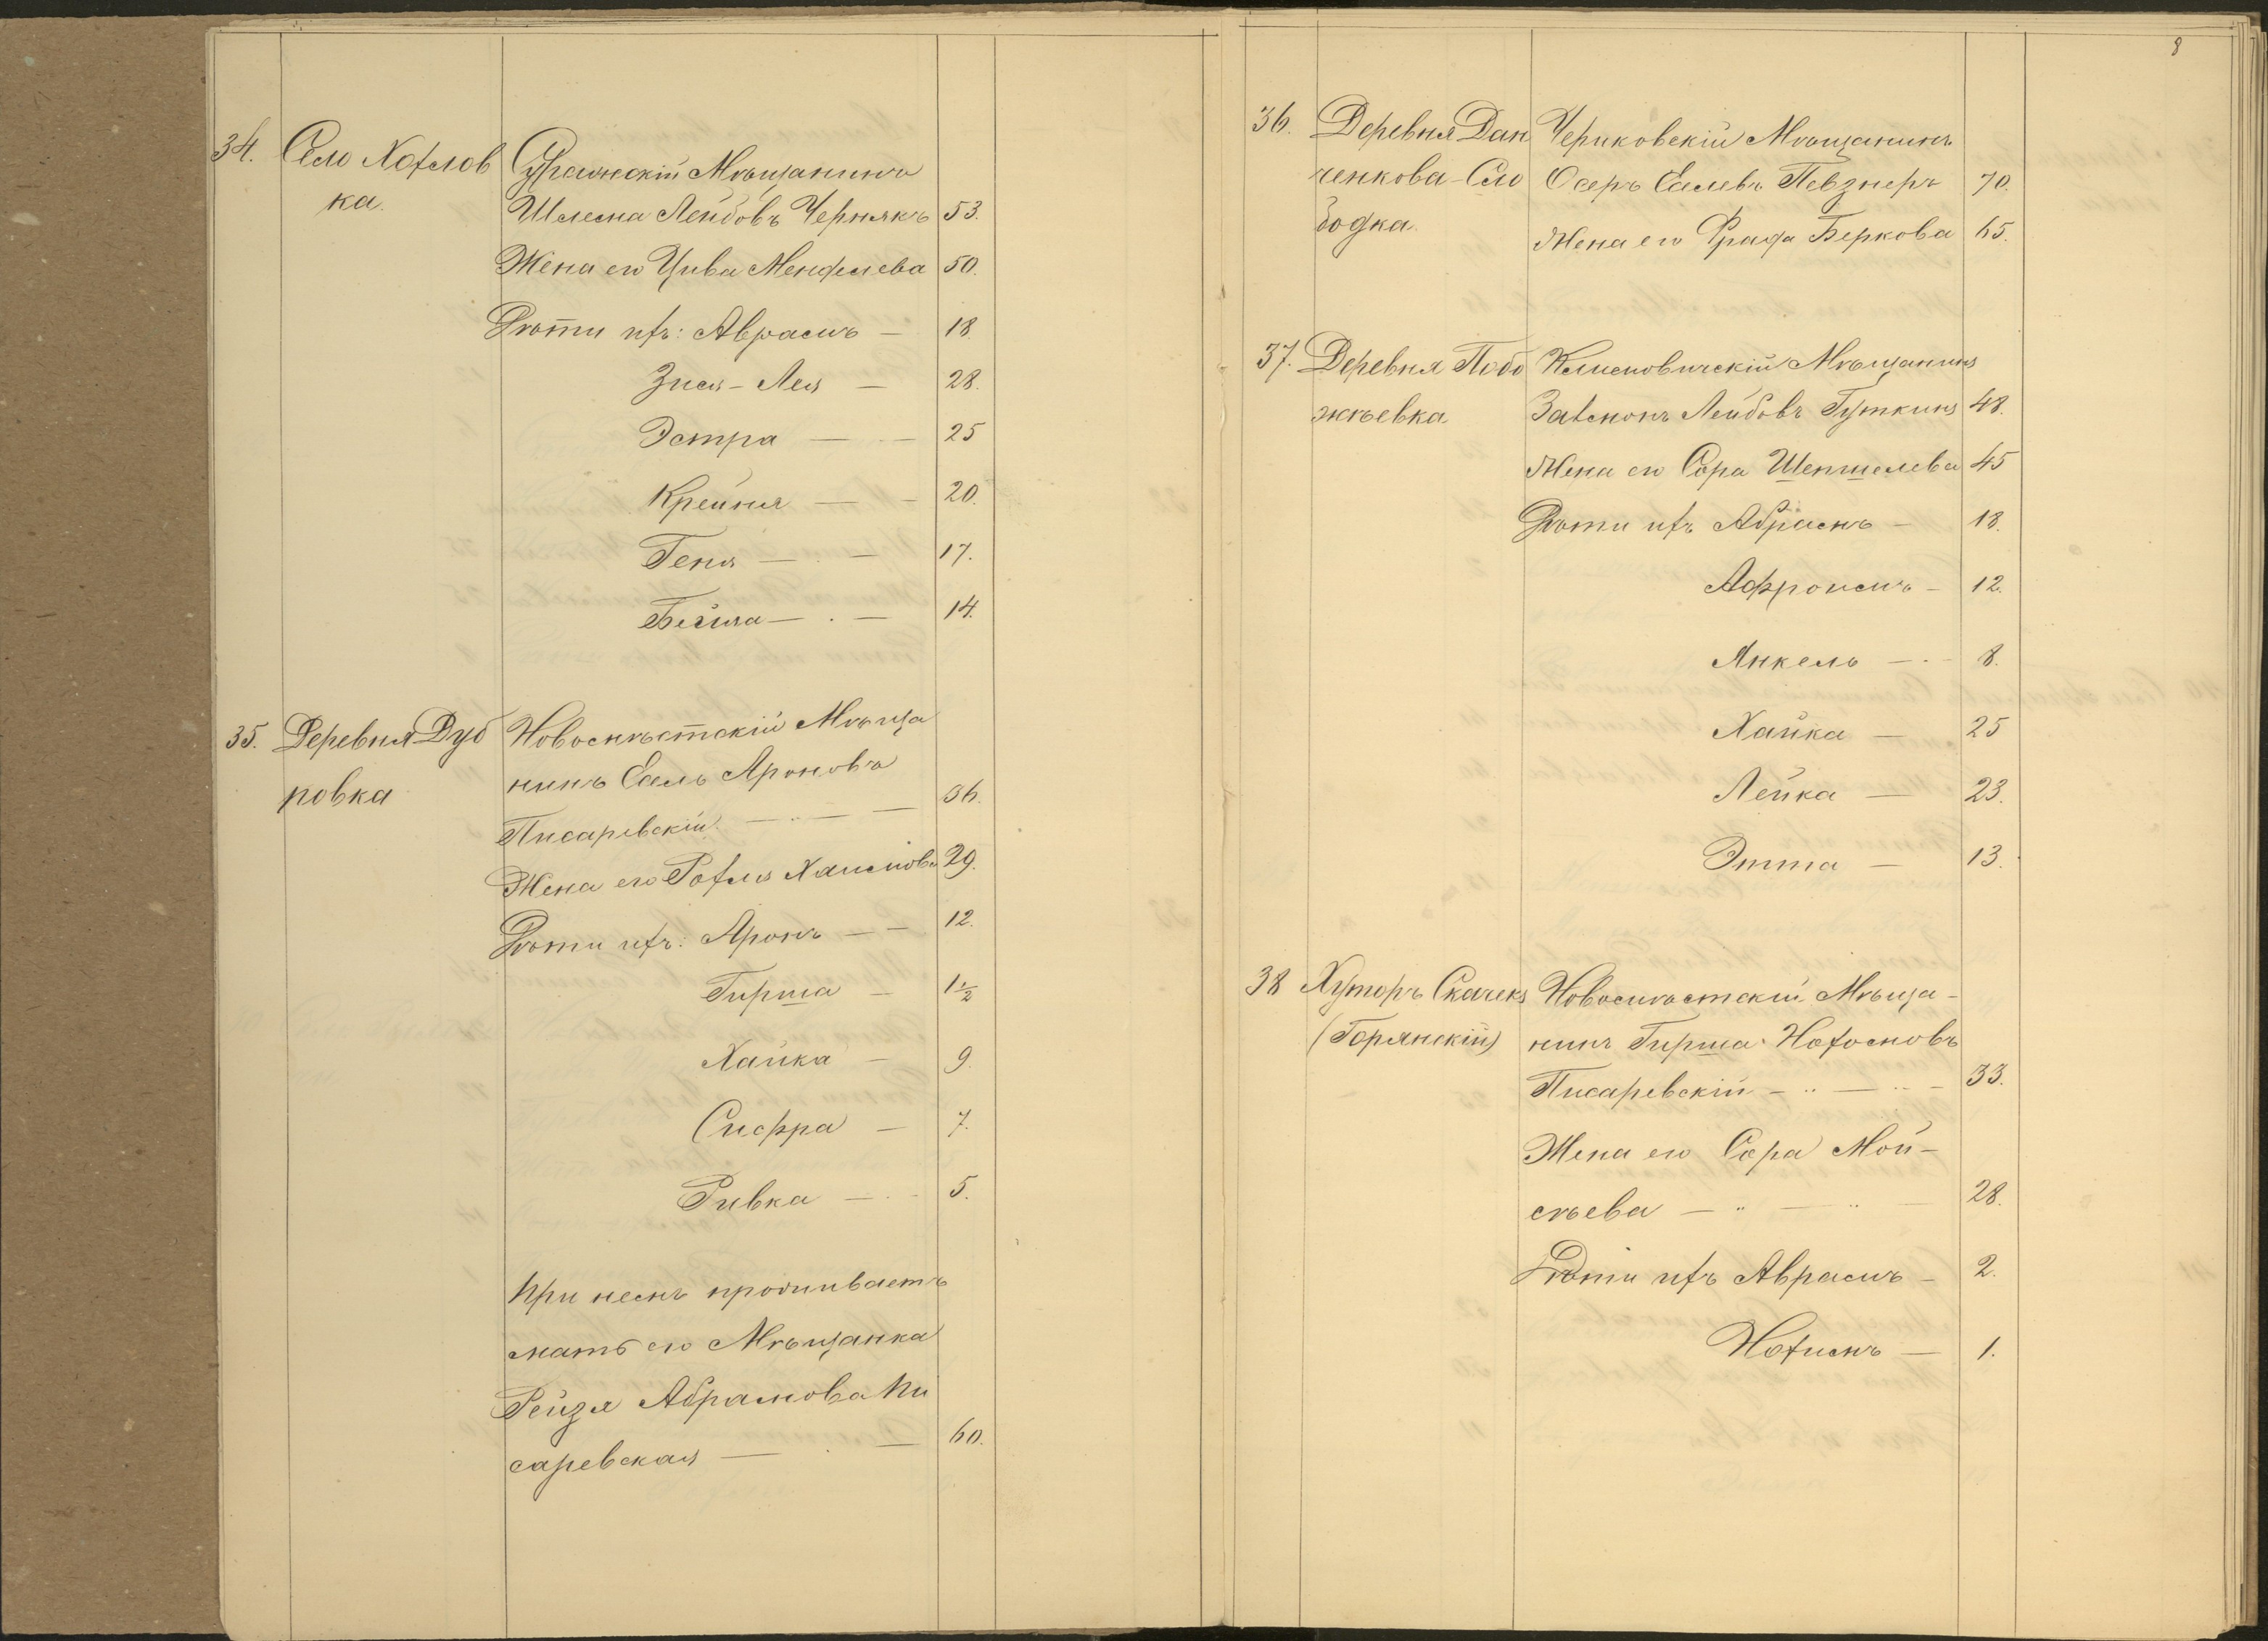 34. Село Хохлов
ка.
Суражскій Мѣщанинъ
Шлема Лейбовъ Чернякъ 53.
Жена его Цива Менделева 50.
Дѣти ихъ: Авраамъ — 18.
Зися-Лея — 28.
Эстра — 25
Крейня — 20.
Геня — 17.
Бейля — 14.
35. Деревня Дуб
ровка
Новомѣстскій Мѣща
нинъ Еель Ароновъ
Писаревскій — 36.
Жена его Рохля Хаимова 29.
Дѣти ихъ: Аронъ — 12.
Гирша — 1½
Хайка — 9.
Сифра — 7.
Ривка — 5.
При немъ проживаетъ
мать его Мѣщанка
Рейзя Абрамова Пи
саревская — 60.
8
36. Деревня Дан
ченкова-Сло
бодка.
Чериковскій Мѣщанинъ
Осеръ Еелевъ Певзнеръ 70.
Жена его Фрада Беркова 65.
37. Деревня Побо
жѣевка
Климовичскій Мѣщанинъ
Залмонъ Лейбовъ Гуткинъ 48.
Жена его Сора Шепшелева 45
Дѣти ихъ Абрамъ — 18.
Афроимъ — 12.
Янкель — 8.
Хайка — 25
Лейка — 23.
Этта — 13.
38 Хуторъ Скачекъ
(Горянскій)
Новомѣстскій Мѣща-
нинъ Гирша Нохомовъ
Писаревскій — 33.
Жена его Сора Мой-
сѣева — 28.
Дѣти ихъ Авраамъ — 2.
Нохимъ — 1.